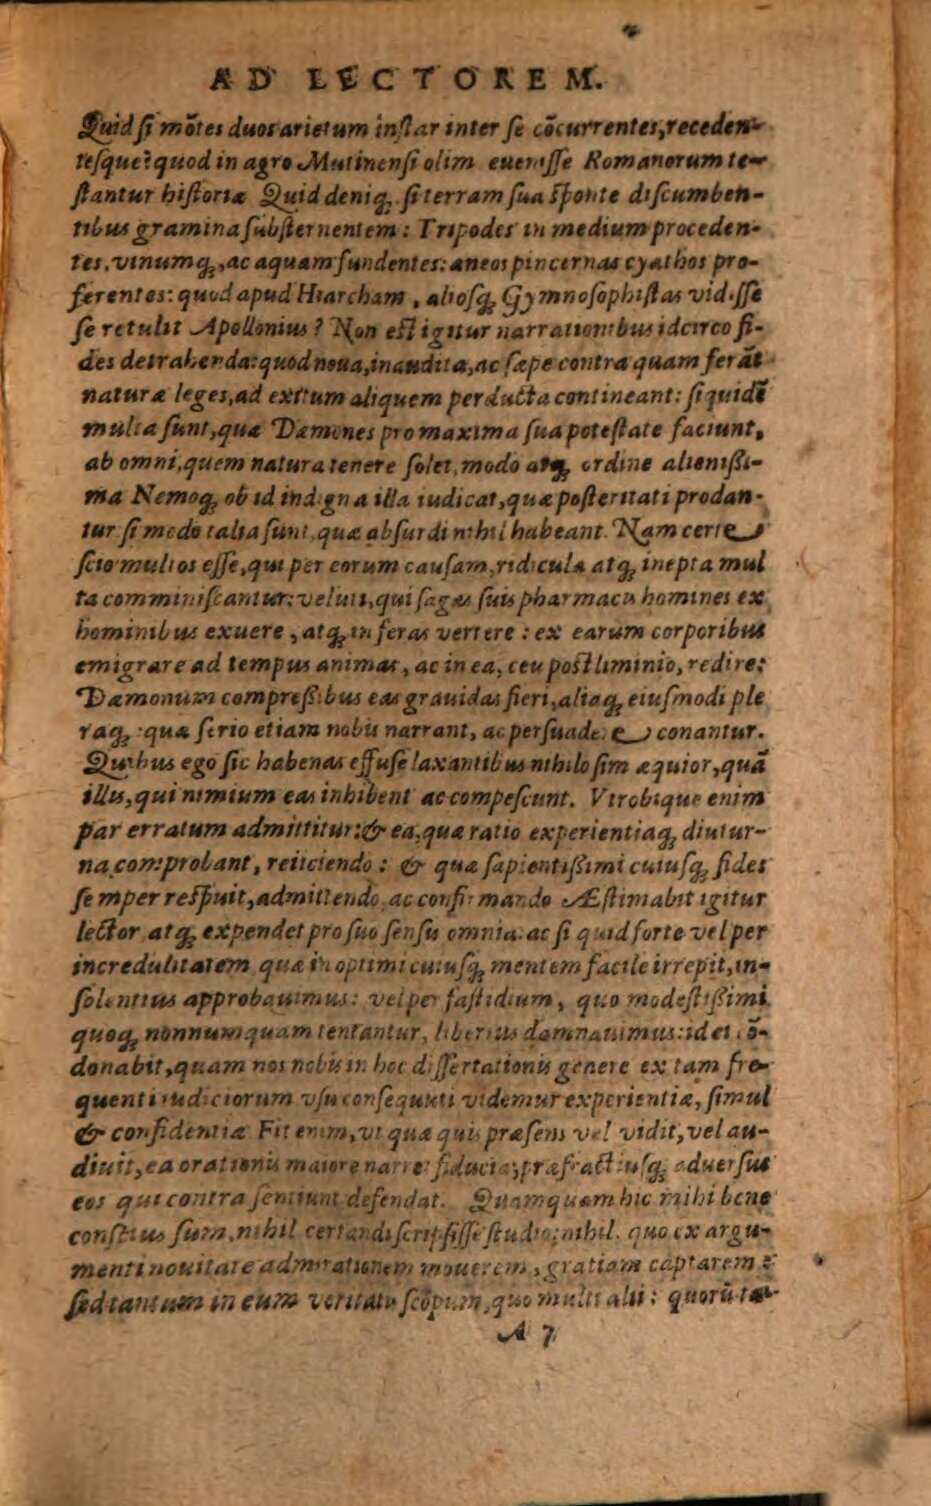 AD LECTOREM.
Quid si mōtes duos arietum instar inter se cōcurrentes, receden-
tesque? quod in agro Mutinensi olim euenisse Romanorum te-
stantur historiæ Quid deniq; si terram sua sponte discumben-
tibus gramina substernentem: Tripodes in medium proceden-
tes, vinumq;, ac aquam fundentes: æneos pincernas cyathos pro-
ferentes: quod apud Hiarcham, aliosq; Gymnosophistas vidisse
se retulit Apollonius? Non est igitur narrationibus idcirco fi-
des detrahenda: quod noua, inaudita, ac sæpe contra quam ferāt
naturæ leges, ad exitum aliquem perducta contineant: siquidē
multa sunt, quæ Dæmones pro maxima sua potestate faciunt,
ab omni, quem natura tenere solet, modo atq; ordine alienißi-
ma Nemoq; ob id indigna illa iudicat, quæ posteritati prodan-
tur si modo talia sunt, quæ absurdi nihil habeant. Nam certe
scio multos esse, qui per eorum causam, ridicula atq; inepta mul
ta comminiscantur: veluti, qui sagas suis pharmacis homines ex
hominibus exuere, atq; in feras vertere: ex earum corporibus
emigrare ad tempus animas, ac in ea, ceu postliminio, redire:
Dæmonum compreßibus eas grauidas fieri, aliaq; eiusmodi ple
raq;: quæ serio etiam nobis narrant, ac persuadere conantur.
Quibus ego sic habenas effuse laxantibus nihilo sim æquior, quā
illis, qui nimium eas inhibent ac compescunt. Vtrobique enim
par erratum admittitur: & ea, quæ ratio experientiaq; diutur-
na comprobant, reiiciendo: & quæ sapientißimi cuiusq; fides
semper respuit, admittendo, ac confirmando Æstimabit igitur
lector atq; expendet pro suo sensu omnia: ac si quid forte vel per
incredulitatem quæ in optimi cuiusq; mentem facile irrepit, in-
solentius approbauimus: vel per fastidium, quo modestißimi
quoq; nonnumquam tentantur, liberius damnauimus: id ei cō-
donabit, quam nos nobis in hoc dissertationis genere ex tam fre-
quenti iudiciorum vsu consequuti videmur experientiæ, simul
& confidentiæ Fit enim, vt quæ quis præsens vel vidit, vel au-
diuit, ea orationis maiore narret fiducia, præfractiusq; aduersus
eos qui contra sentiunt defendat. Quamquam hic mihi bene
conscius sum, nihil certandi scripsisse studio; nihil, quo ex argu-
menti nouitate admirationem mouerem, gratiam captarem:
sed tantum in eum veritatis scōpum, quo multi alii: quorū ta-
A 7